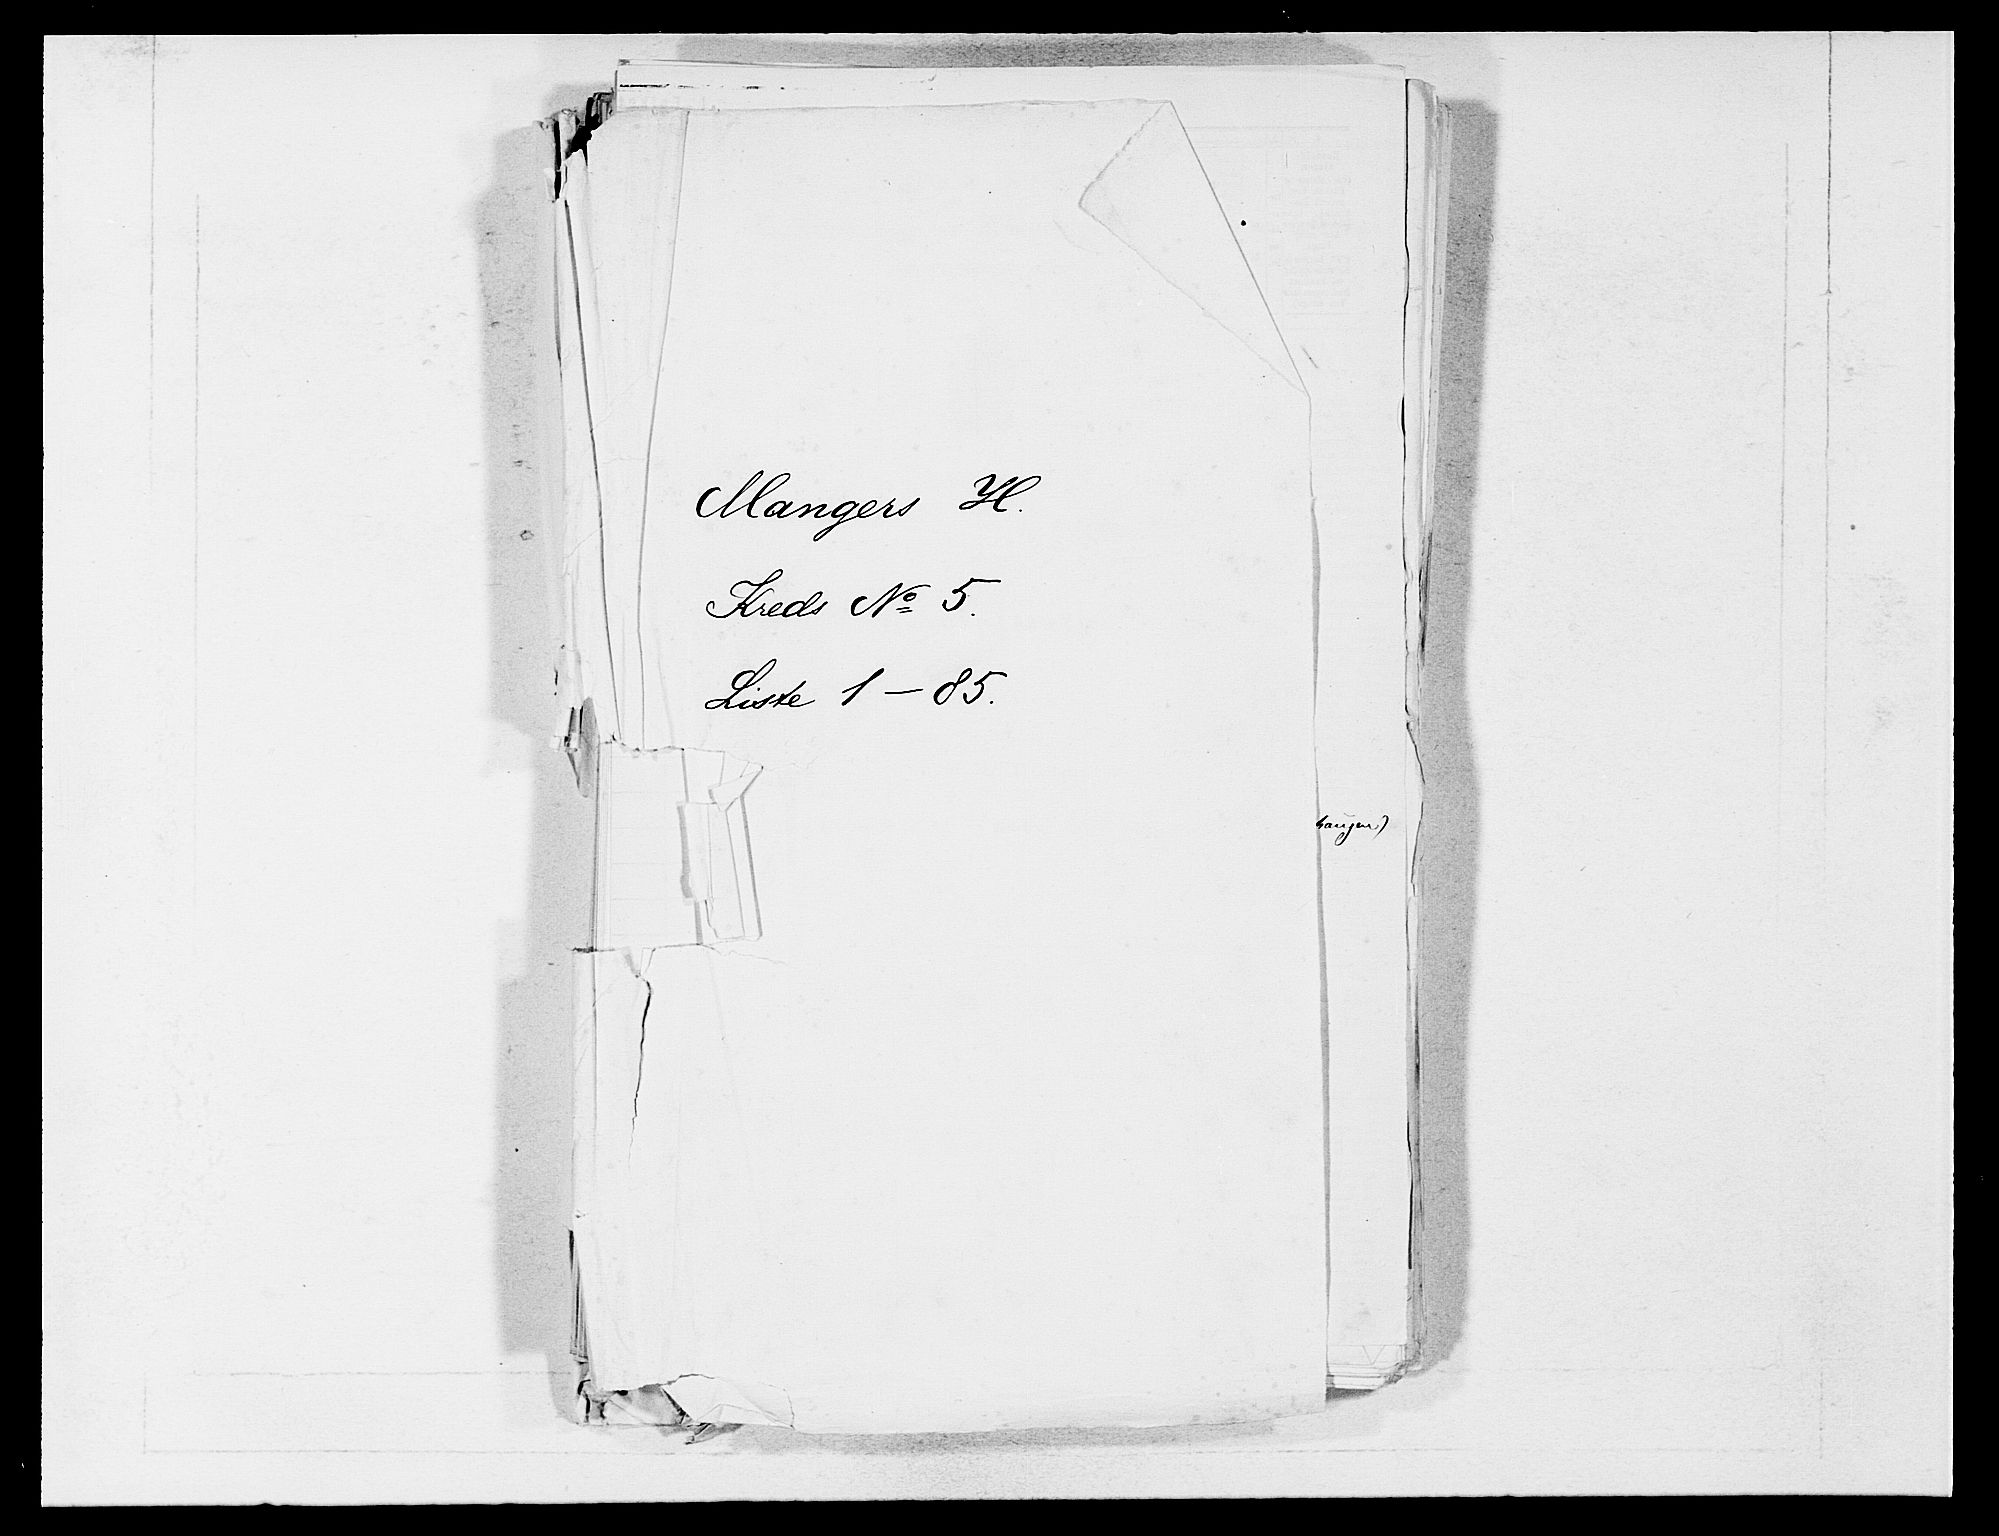 Mangers H.
Kreds No 5.
Liste 1 — 85.